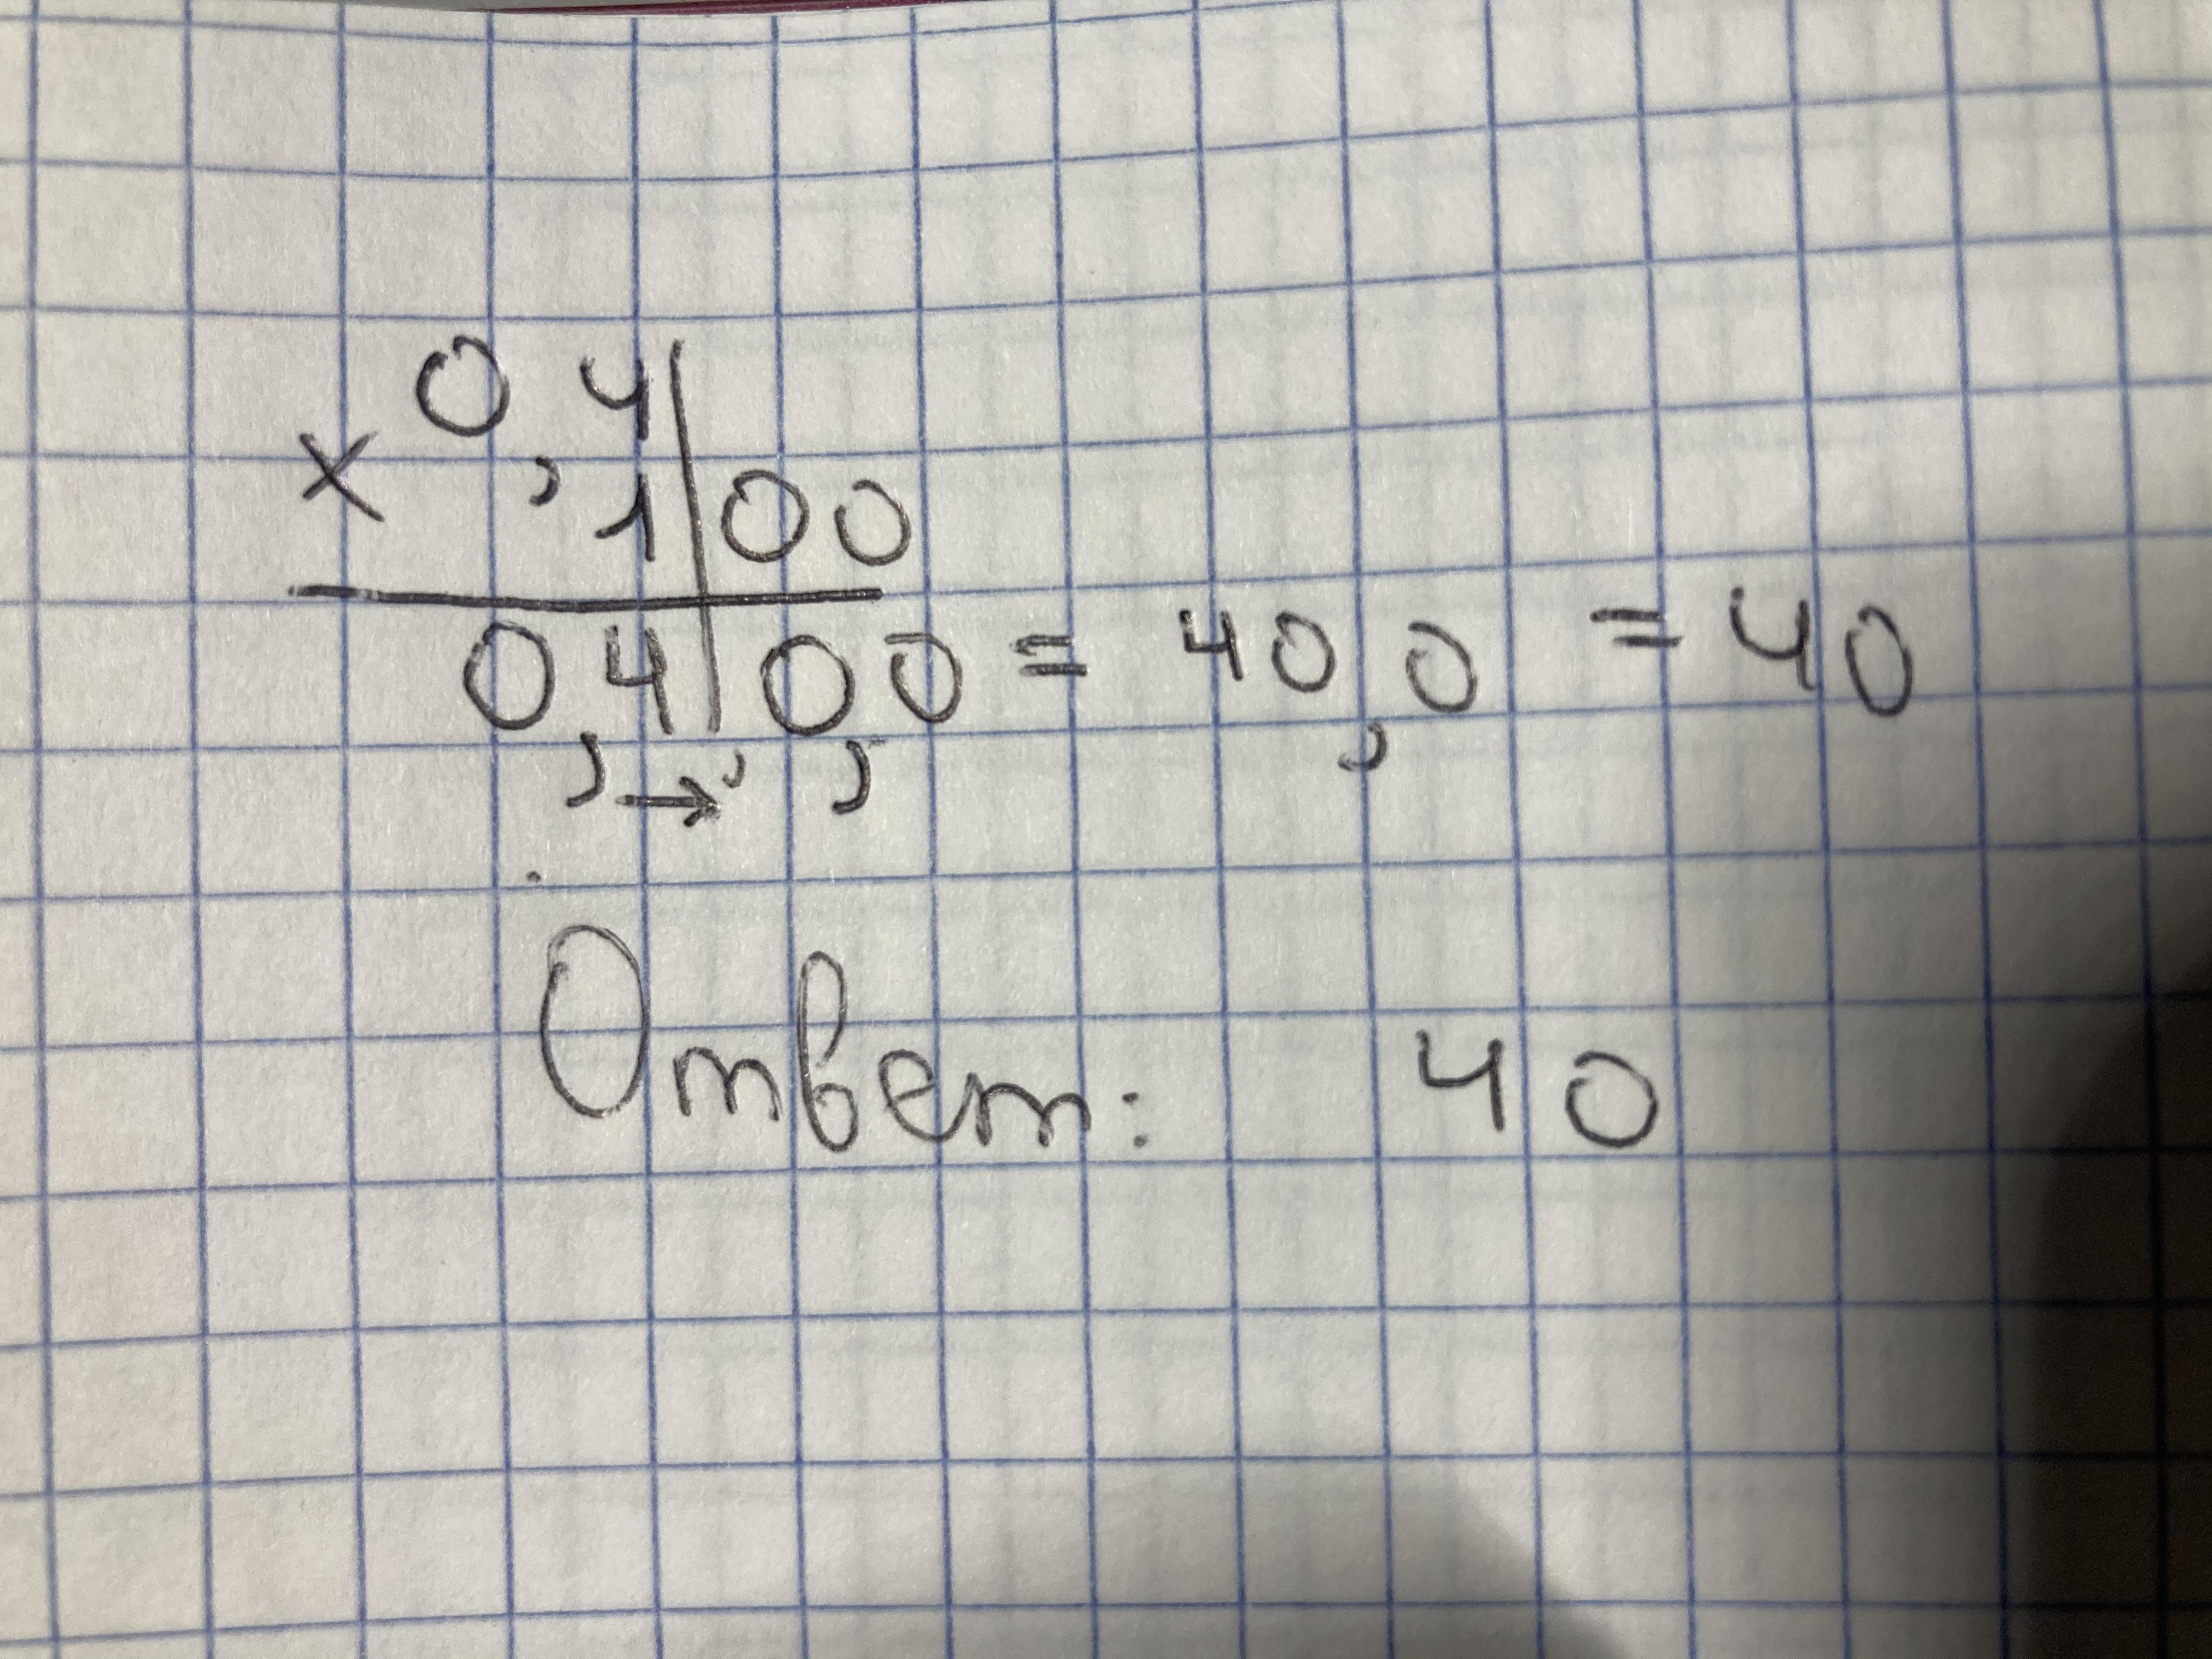 0,4
× 100
0,400 = 40,0 = 40
, → , ,
Ответ: 40